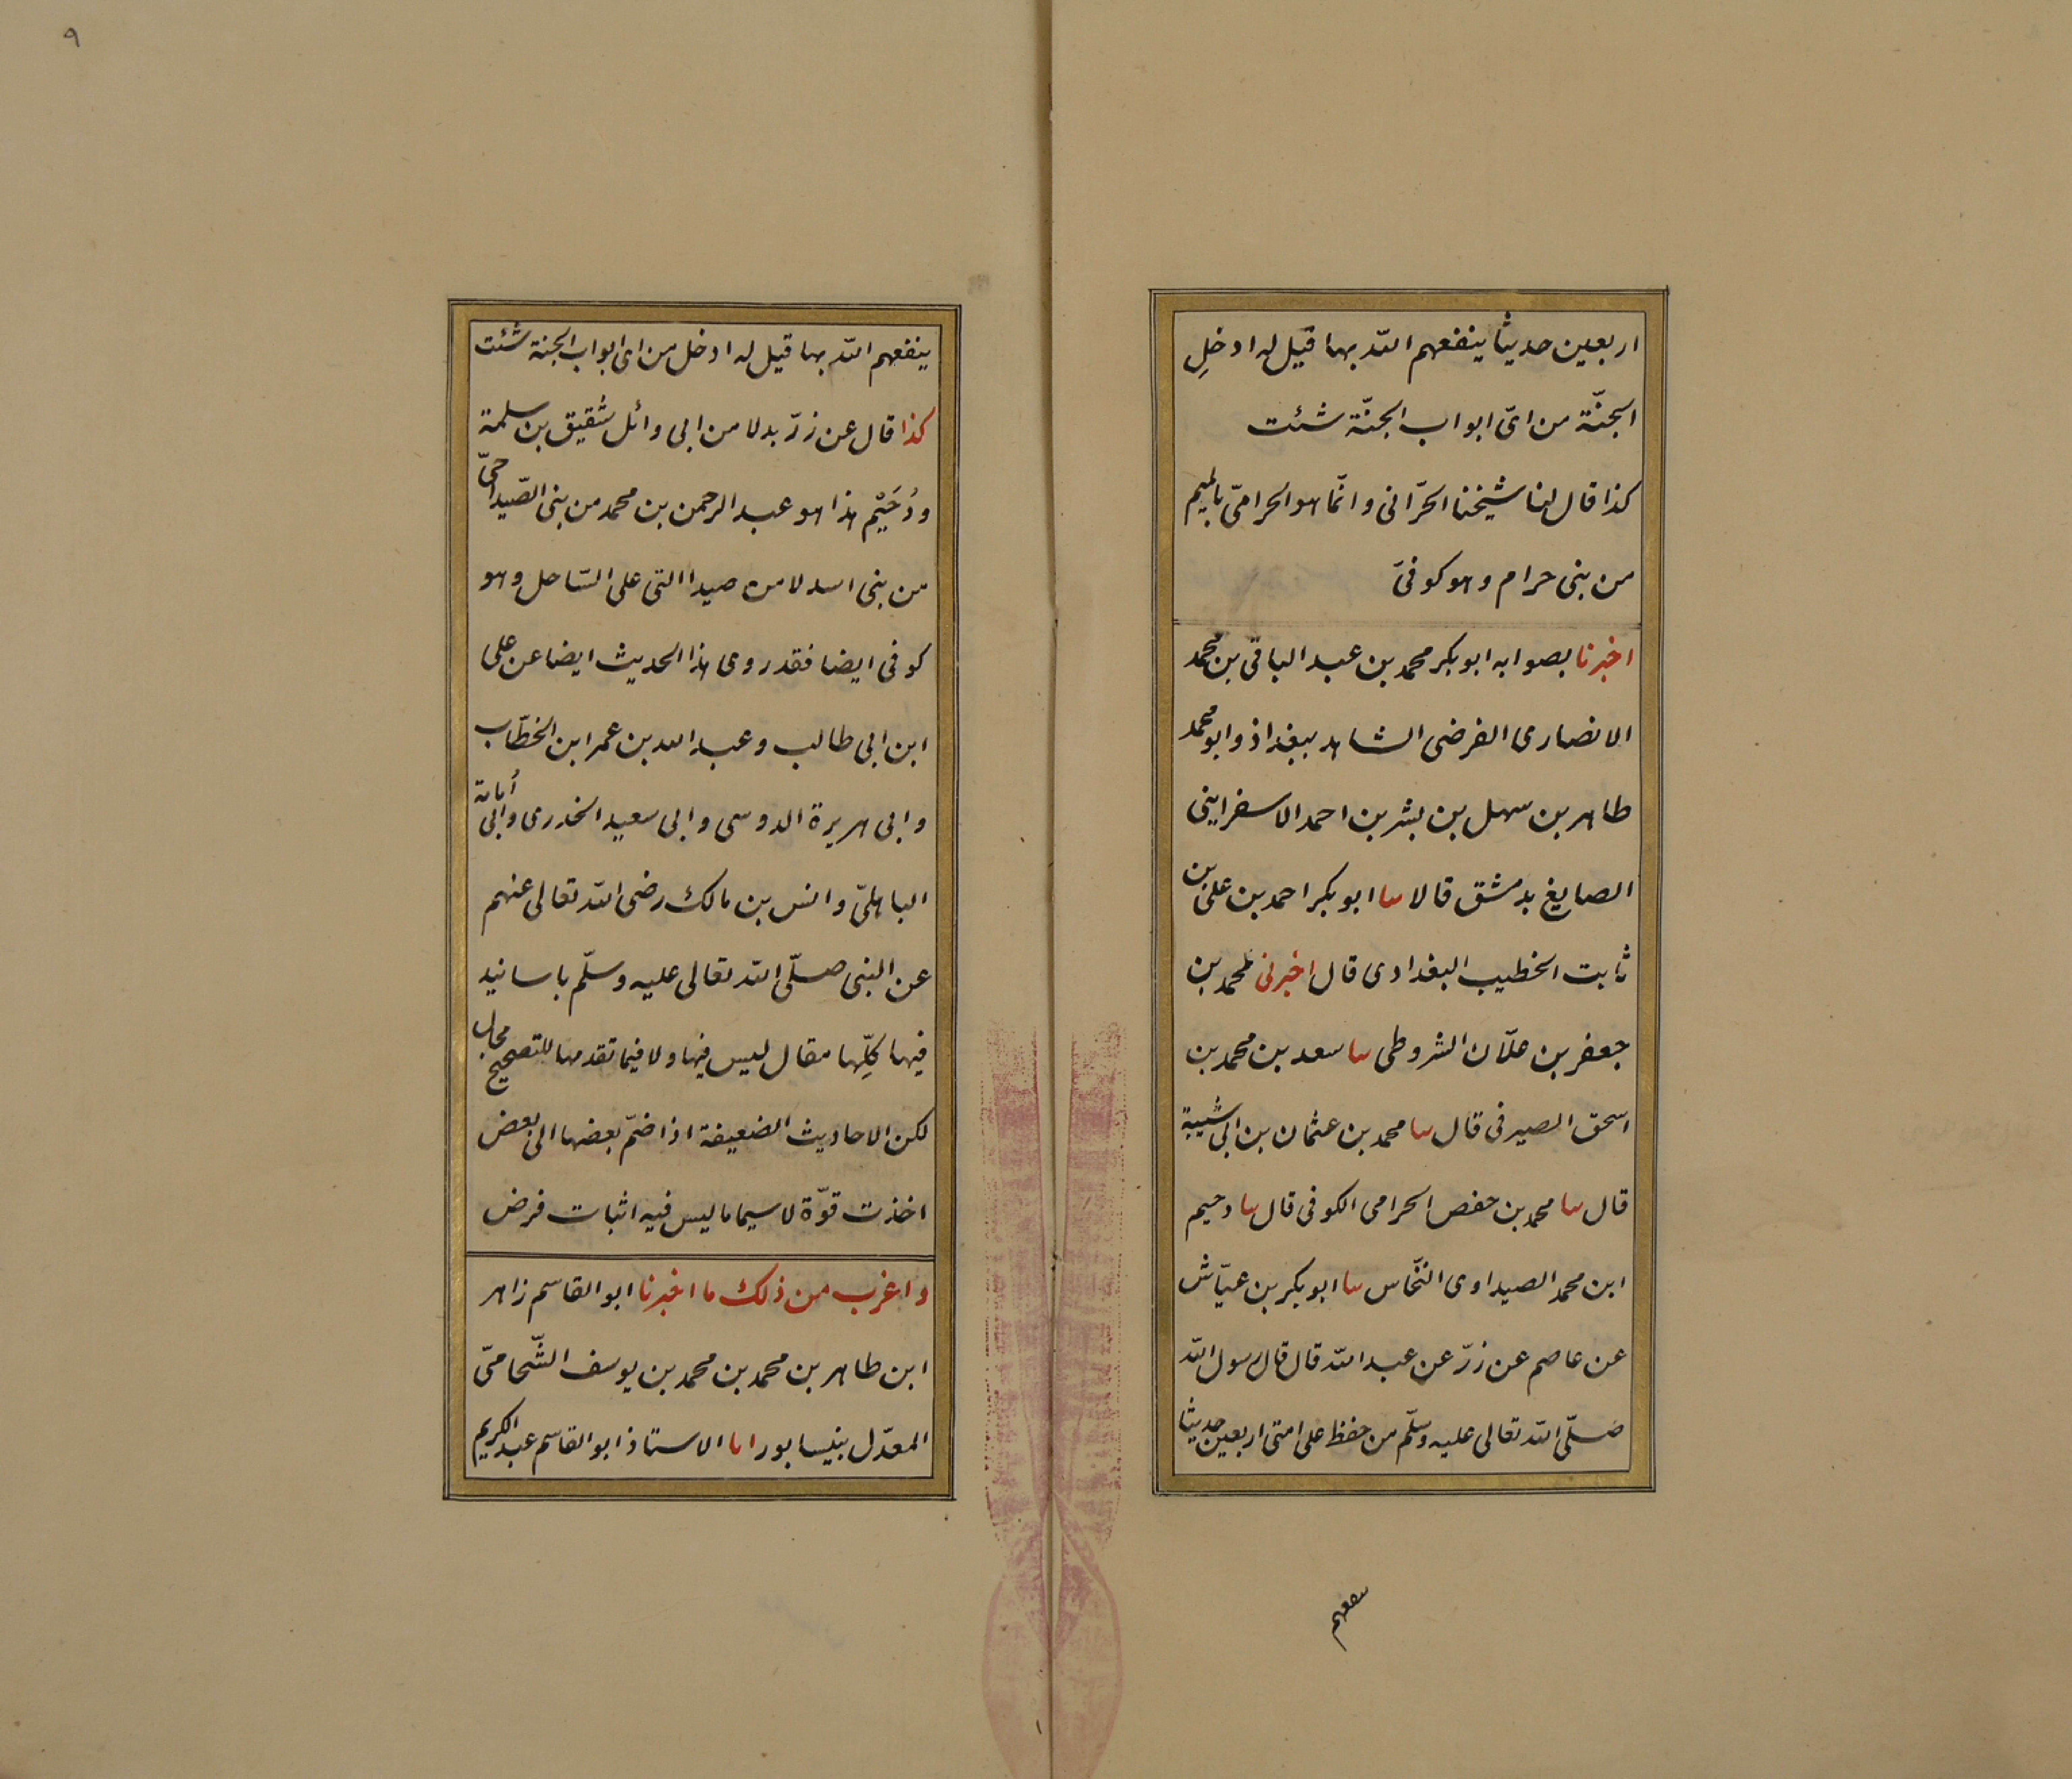 اربعين حديثا ينفعهم الله بها قيل له ادخلِ
الجنّة من اىّ ابواب الجنّة شئت
كذا قال لنا شيخنا الحرّانى وانّما هو الحرامىّ بالميم
من بنى حرام وهو كوفىّ
اخبرنا بصوابه ابو بكر محمد بن عبد الباقى بن محمد
الانصارى الفرضى الشاهد ببغداذ وابو محمد
طاهر بن سهل بن بشر بن احمد الاسفراينى
الصايغ بدمشق قالا سا ابو بكر احمد بن على بن
ثابت الخطيب البغدادى قال اخبرنى محمد بن
جعفر بن علّان الشروطى سا سعد بن محمد بن
اسحق الصيرفى قال سا محمد بن عثمان بن ابى شيبة
قال سا محمد بن حفص الحرامى الكوفى قال سا دحيم
ابن محمد الصيداوى النخّاس سا ابو بكر بن عيّاش
عن عاصم عن زرّ عن عبد الله قال قال رسول الله
صلّى الله تعالى عليه وسلّم من حفظ على امتى اربعين حديثا
ينفعهم
٩
ينفعهم الله بها قيل له ادخل من اى ابواب الجنة شئت
كذا قال عن زرّ بدلا من ابى وائل شقيق بن سلمة
ودُحَيْم هذا هو عبد الرحمن بن محمد من بنى الصّيدا حىّ
من بنى اسد لا من صيدا التى على السّاحل وهو
كوفى ايضا فقد روى هذا الحديث ايضا عن على
ابن ابى طالب وعبد الله بن عمر ابن الخطّاب
وابى هريرة الدوسى وابى سعيد الخدرى وابى أمامة
الباهلىّ وانس بن مالك رضى الله تعالى عنهم
عن النبى صلّى الله تعالى عليه وسلّم باسانيد
فيها كلّها مقال ليس فيها ولا فيما تقدمها للتصحيح مجال
لكن الاحاديث الضعيفة اذا ضمّ بعضها الى بعض
اخذت قوّة لا سيما ما ليس فيه اثبات فرض
واغرب من ذلك ما اخبرنا ابو القاسم زاهر
ابن طاهر بن محمد بن محمد بن يوسف الشّحامىّ
المعدّل بنيسابور انا الاستاذ ابو القاسم عبد الكريم